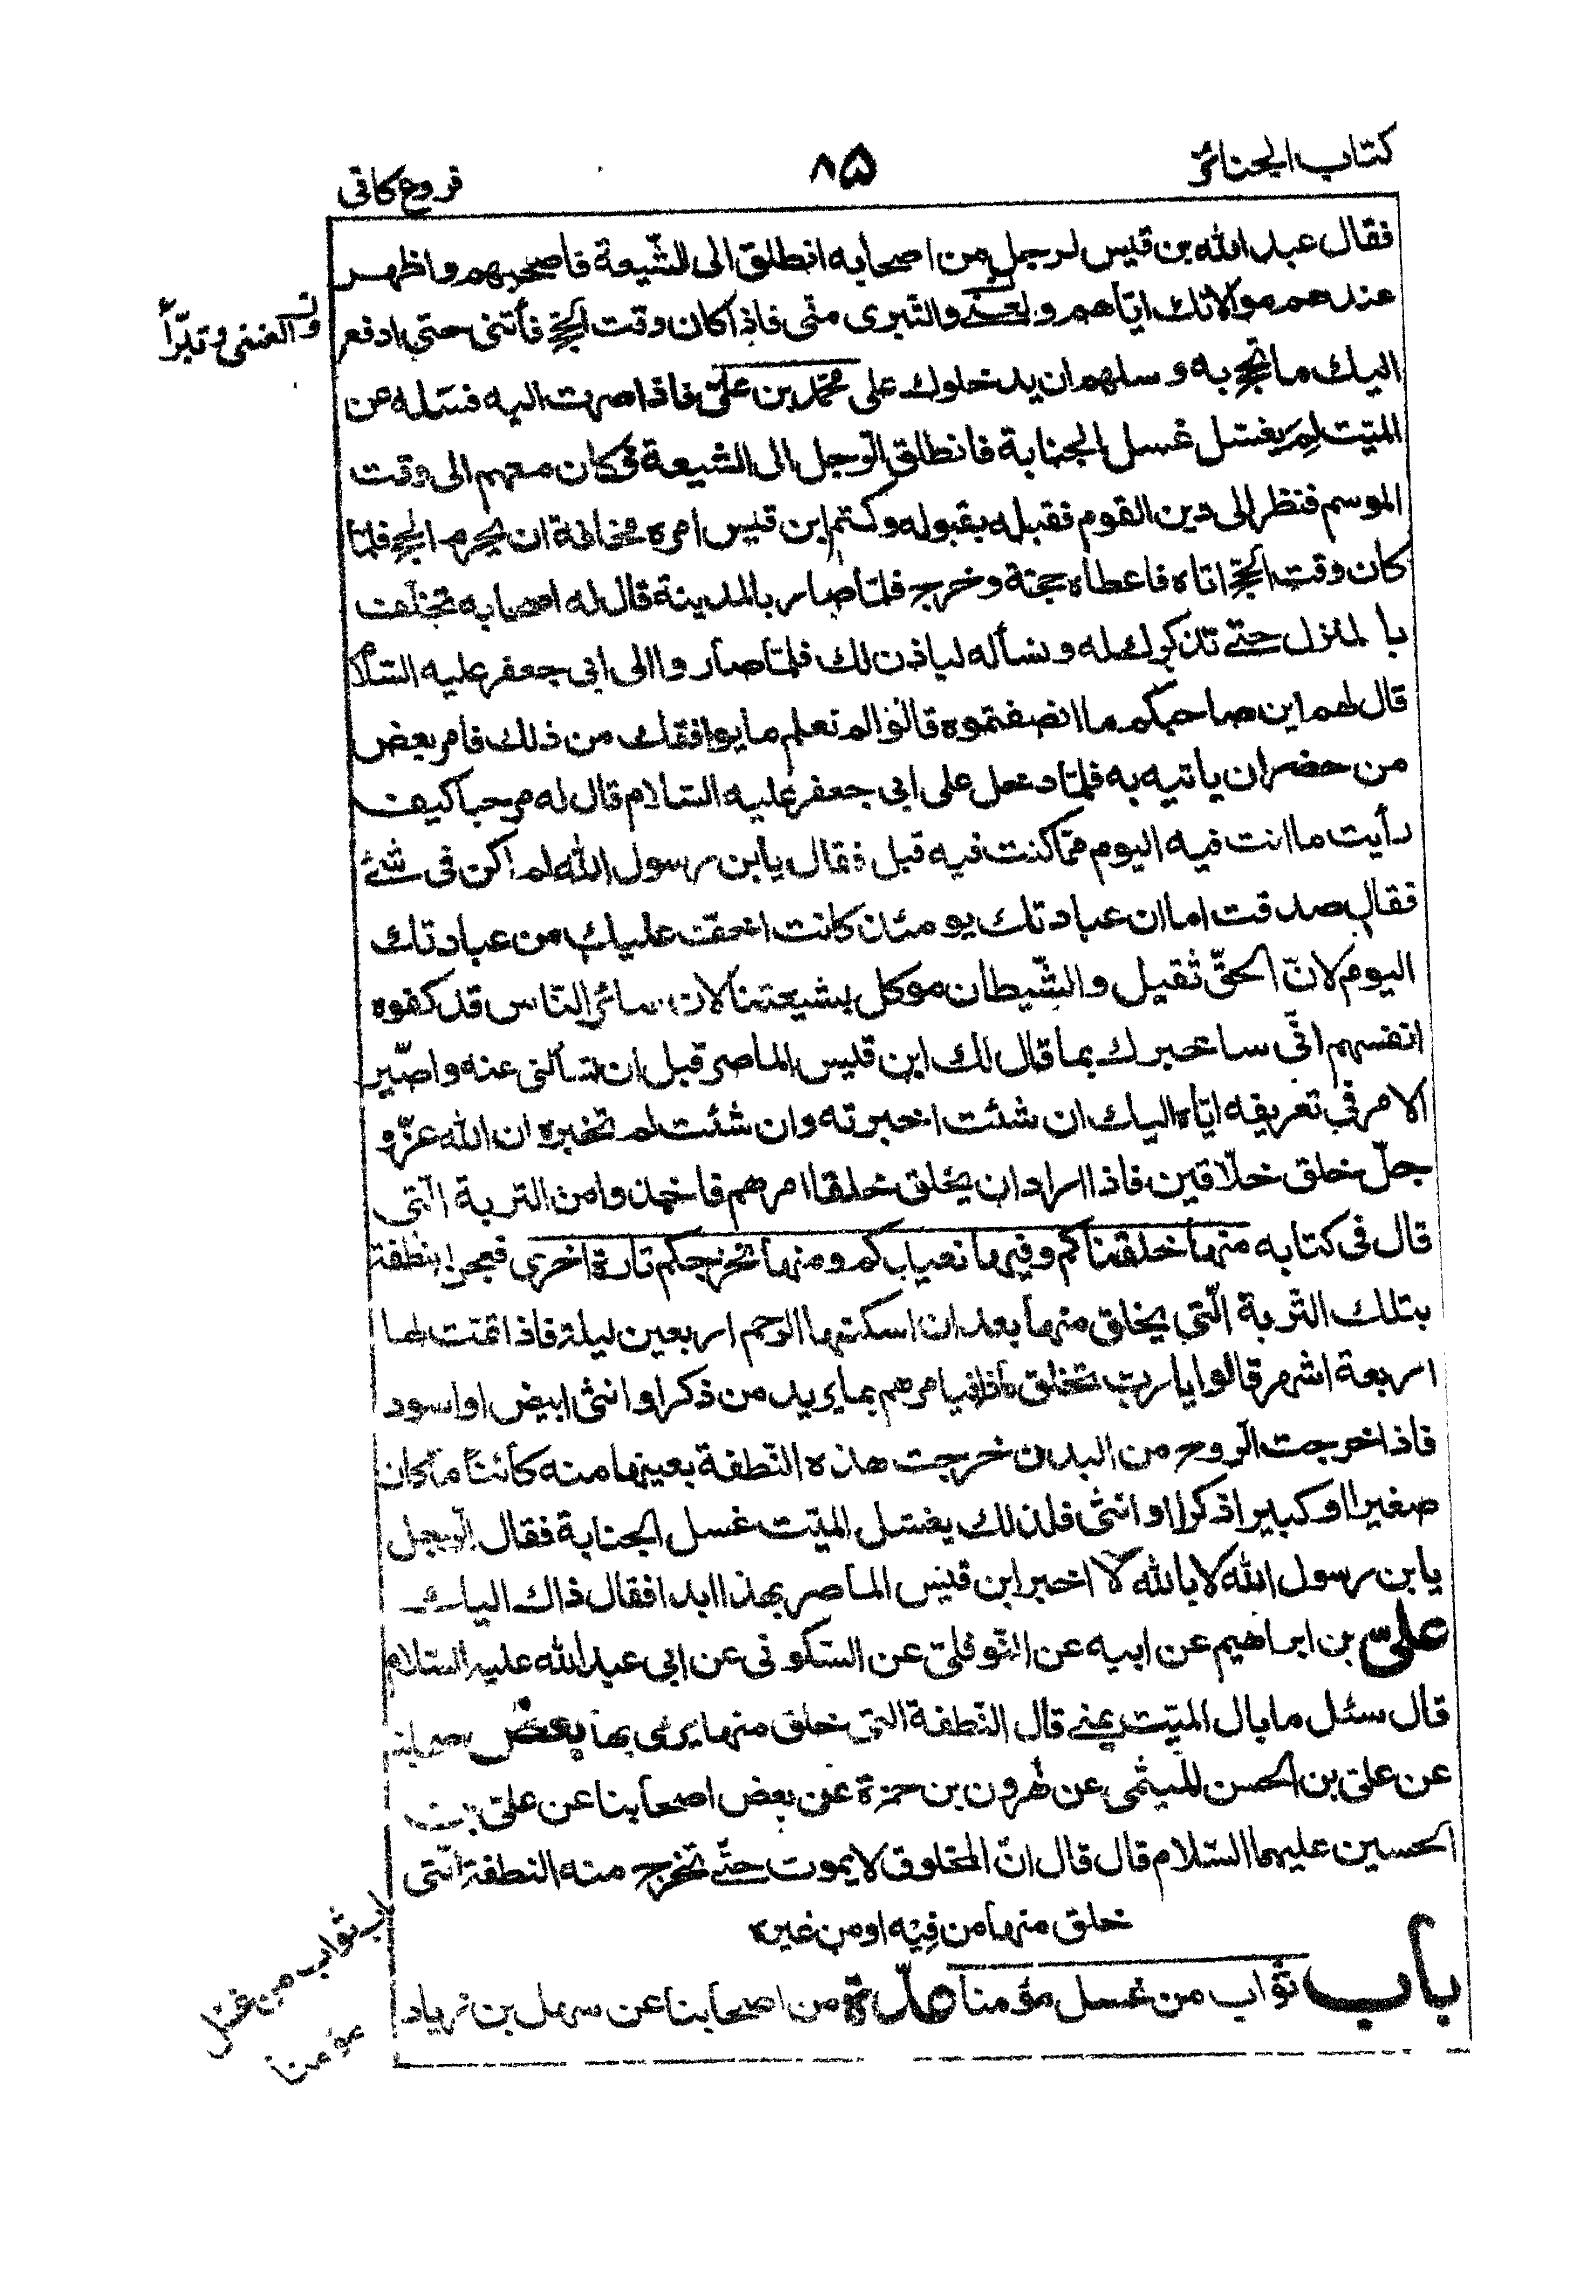 كتاب الجنائز
۸۵
فروع كافي
فقال عبد الله بن قيس لرجل من اصحابه انطلق الى الشّيعة فاصحبهم واظهر
عندهم موالاتك ايّاهم ولعنتي والتبرى منّى فاذا كان وقت الحجّ فأتنى حتى ادفع
والعنى وتبرّأ
اليك ما تحجّ به وسلهم ان يدخلوك على محمّد بن علىّ فاذا صرت اليه فسئله عن
الميّت لم يغسّل غسل الجنابة فانطلق الرّجل الى الشيعة فكان معهم الى وقت
الموسم فنظر الى دين القوم فقبله بقبوله وكتم ابن قيس امره مخافة ان يحرم الحجّ فلمّا
كان وقت الحجّ اتاه فاعطاه حجّة وخرج فلمّا صار بالمدينة قال له اصحابه تخلّف
بالمنزل حتّى نذكرك له ونسأله لياذن لك فلمّا صاروا الى ابى جعفر عليه السّلام
قال لهم اين صاحبكم ما انصفتموه قالوا لم نعلم ما يوافقك من ذلك فامر بعض
من حضر ان ياتيه به فلمّا دخل على ابى جعفر عليه السّلام قال له مرحبا كيف
رأيت ما انت فيه اليوم ممّا كنت فيه قبل فقال يابن رسول الله لم اكن فى شئ
فقال صدقت اما ان عبادتك يومئذ كانت اخفّ عليك من عبادتك
اليوم لانّ الحقّ ثقيل والشّيطان موكل بشيعتنا لان سائر النّاس قد كفوه
انفسهم انّى ساخبرك بما قال لك ابن قيس الماصر قبل ان تسألنى عنه واصيّر
الامر فى تعريفه ايّاه اليك ان شئت اخبرته وان شئت لم تخبره ان الله عزّ و
جلّ خلق خلّاقين فاذا اراد ان يخلق خلقا امرهم فاخذوا من التربة الّتى
قال فى كتابه منها خلقناكم وفيها نعيدكم ومنها نخرجكم تارة اخرى فعجن النطفة
بتلك التّربة الّتى يخلق منها بعد ان اسكنها الرّحم اربعين ليلة فاذا تمّت لها
اربعة اشهر قالوا يا ربّ تخلق ماذا فيامرهم بما يريد من ذكر او انثى ابيض او اسود
فاذا خرجت الرّوح من البدن خرجت هذه النّطفة بعينها منه كائنا ما كان
صغيرا او كبيرا ذكرا او انثى فلذلك يغسّل الميّت غسل الجنابة فقال الرّجل
يابن رسول الله لا بالله لا اخبر ابن قيس الماصر بهذا ابدا فقال ذاك اليك
علىّ بن ابراهيم عن ابيه عن النّوفلىّ عن السّكونى عن ابى عبد الله عليه السّلام
قال سئل ما بال الميّت يمنى قال النّطفة التى خلق منها يرمى بها بعض اصحابنا
عن علىّ بن الحسن الميثمى عن هرون بن حمزة عن بعض اصحابنا عن علىّ بن
الحسين عليهما السّلام قال قال انّ المخلوق لا يموت حتّى تخرج منه النطفة الّتى
خلق منها من فيه او من غيره
باب ثواب من غسل مؤمنا عدّة من اصحابنا عن سهل بن زياد
باب ثواب من غسّل
مؤمنا